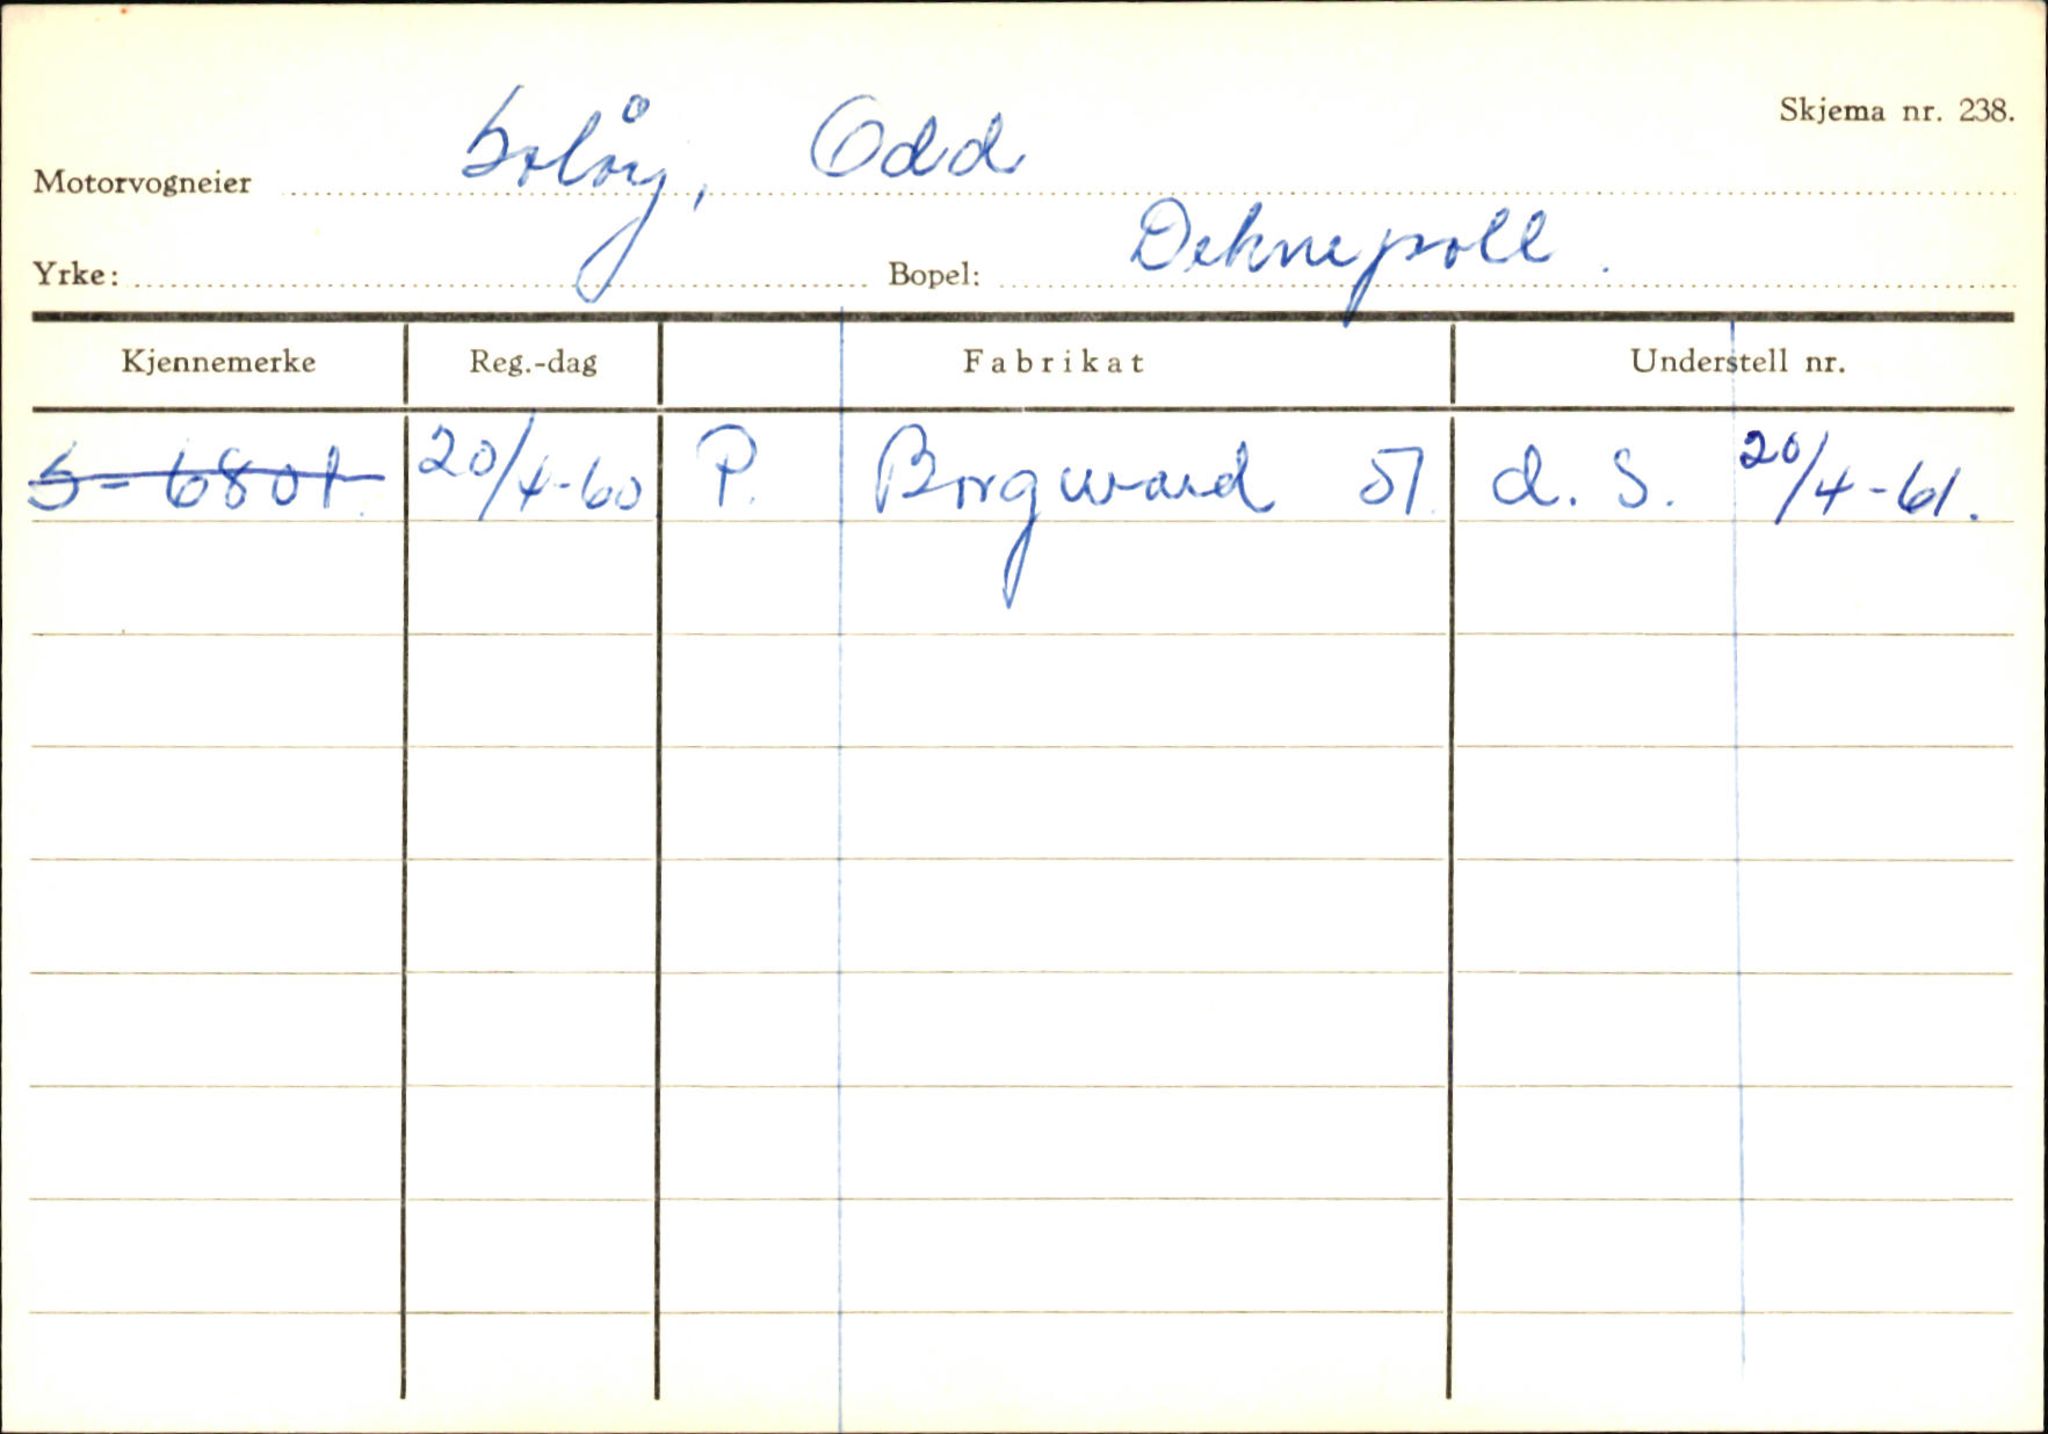 Skjema nr. 238.
Motorvogneier Solåy, Odd
Yrke: Bopel: Deknepoll.
Kjennemerke Reg.-dag Fabrikat Understell nr.
S-6801. 20/4-60 P. Borgward 51. d. S. 20/4-61.